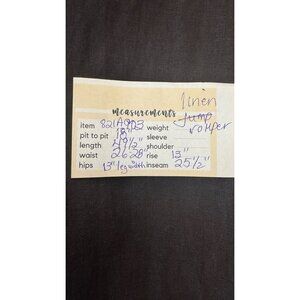 linen
jump
romper
measurements
item 821A003 weight
pit to pit 18" sleeve
length 49 1/2" shoulder
waist 26-28" rise 13"
hips 13" leg width inseam 25 1/2"